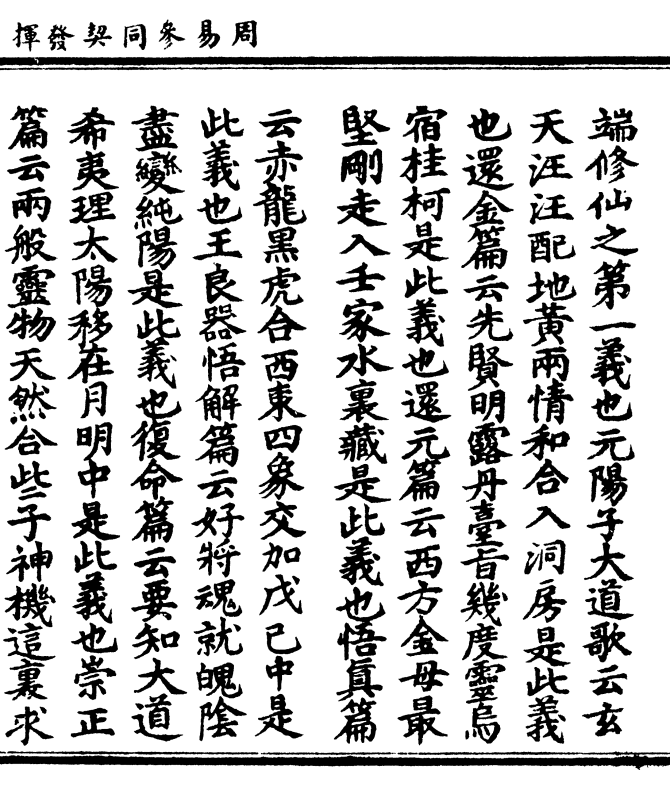 周易參同契發揮
端修仙之第一義也元陽子大道歌云玄
天汪汪配地黃兩情和合入洞房是此義
也還金篇云先賢明露丹臺旨幾度靈烏
宿桂柯是此義也還元篇云西方金母最
堅剛走入壬家水裏藏是此義也悟眞篇
云赤龍黑虎合西東四象交加戊己中是
此義也王良器悟解篇云好將魂就魄陰
盡變純陽是此義也復命篇云要知大道
希夷理太陽移在月明中是此義也崇正
篇云兩般靈物天然合些子神機這裏求